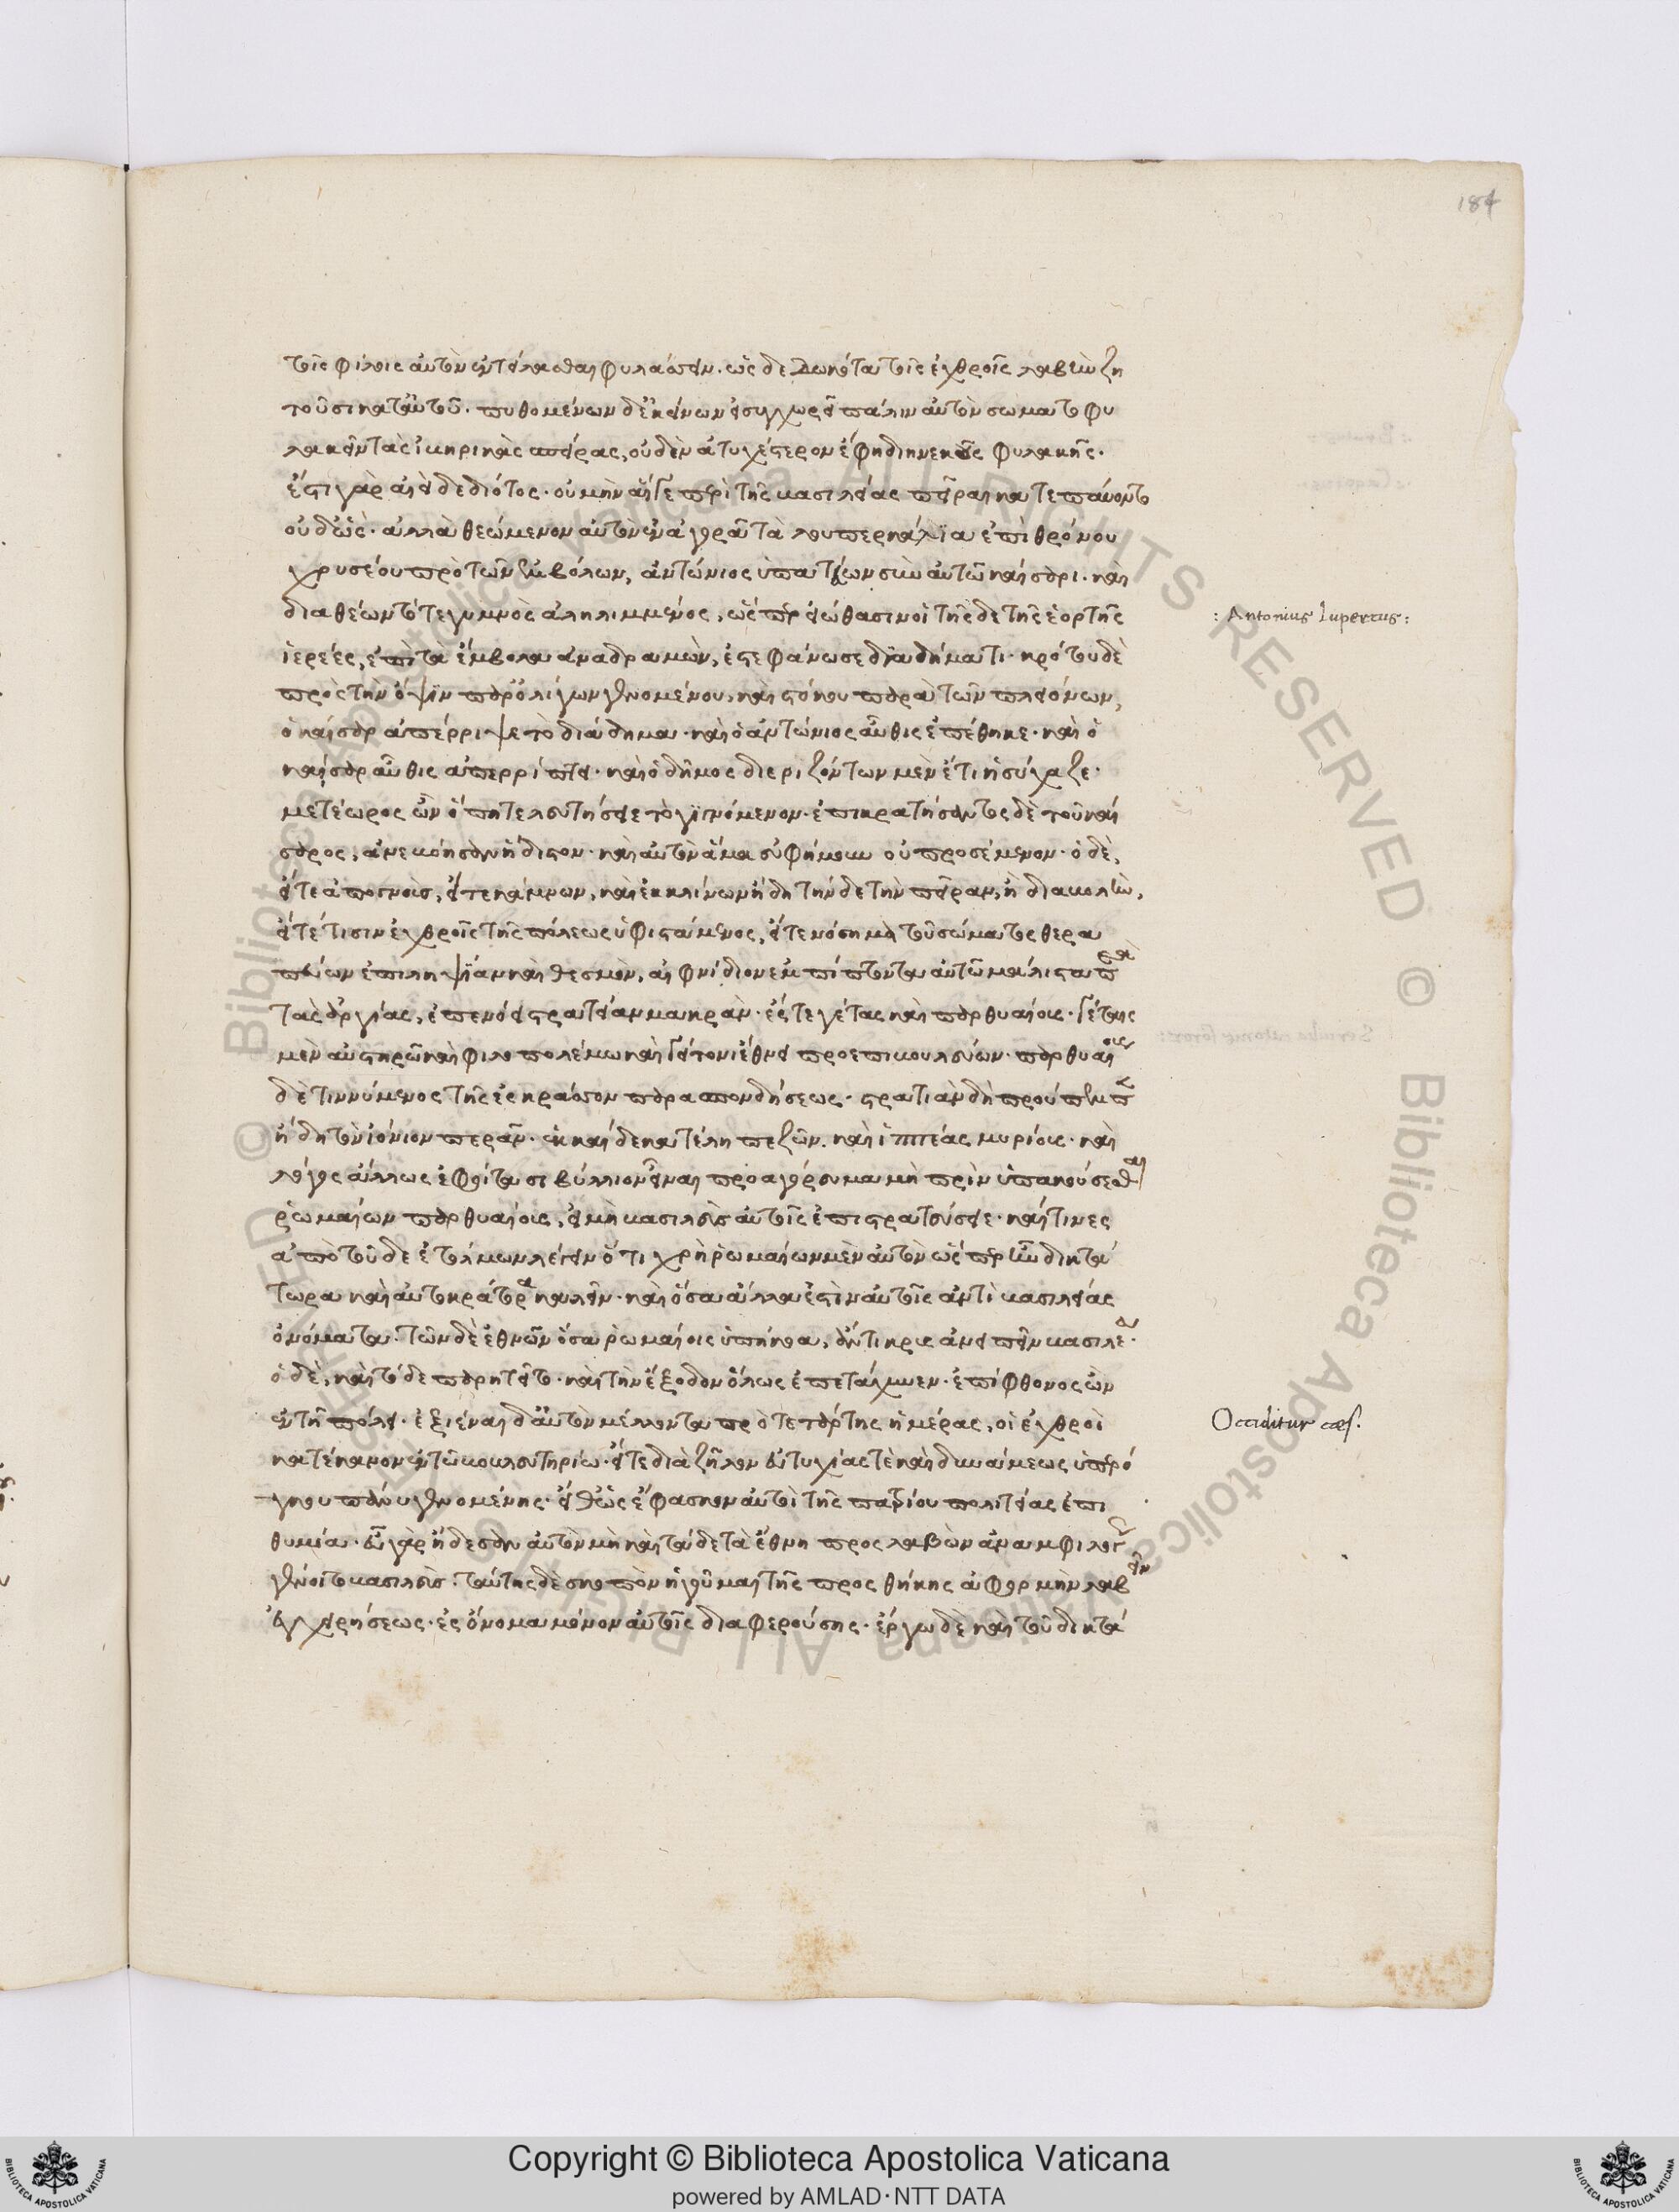 184
τοῖς φίλοις αὐτὸν ἐντείλασθαι φυλάσσειν. ὡς δεδωκότα τοῖς ἐχθροῖς λαβὴν ζη
τοῦσι κατ' αὐτοῦ. πυθομένων δ' ἐκείνων εἰ συγχωρεῖ πάλιν αὐτὸν σωματοφυ
λακεῖν τὰς ἰβηρικὰς σπείρας, οὐδὲν ἀτυχέστερον ἔφη διηνεκοῦς φυλακῆς.
ἔστι γὰρ αἰεὶ δεδιότος. οὐ μὴν αἵ γε περὶ τῆς βασιλείας πεῖραι κατεπαύοντο
οὐδ' ὥς. ἀλλὰ θεώμενον αὐτὸν ἐν ἀγορᾷ τὰ λουπερκάλια ἐπὶ θρόνου
χρυσέου πρὸ τῶν ἐμβόλων, ἀντώνιος ὑπατεύων σὺν αὐτῷ καίσαρι. καὶ
διαθέων τότε γυμνὸς ἀληλιμμένος, ὥσπερ εἰώθασιν οἱ τῆσδε τῆς ἑορτῆς
ἱερέες, ἐπὶ τὰ ἔμβολα ἀναδραμὼν, ἐστεφάνωσε διαδήματι. κρότου δὲ
πρὸς τὴν ὄψιν παρ' ὀλίγων γενομένου, καὶ στόνου παρὰ τῶν πλειόνων,
ὁ καῖσαρ ἀπέρριψε τὸ διάδημα. καὶ ὁ ἀντώνιος αὖθις ἐπέθηκε. καὶ ὁ
καῖσαρ αὖθις ἀπερρίπτει. καὶ ὁ δῆμος διεριζόντων μὲν ἔτι ἡσύχαζε.
μετέωρος ὢν ὅπῃ τελευτήσειε τὸ γιγνόμενον. ἐπικρατήσαντος δὲ τοῦ καί
σαρος, ἀνεβόησαν ἥδιστον. καὶ αὐτὸν ἅμα εὐφήμουν οὐ προσέμενον. ὁ δὲ,
εἴτε ἀπογνοὺς, εἴτε κάμνων, καὶ ἐκκλίνων ἤδη τήνδε τὴν πεῖραν, ἢ διαβολὴν,
εἴτε τισὶν ἐχθροῖς τῆς πόλεως ἀφιστάμενος, εἴτε νόσημα τοῦ σώματος θερα
πεύων ἐπιληψίαν καὶ σπασμὸν, αἰφνίδιον ἐμπίπτοντα αὐτῷ μάλιστα παρὰ
τὰς ἀργίας, ἐπενόει στρατείαν μακρὰν. ἔς τε γέτας καὶ παρθυαίους. γέταις
μὲν αὐστηρῷ καὶ φιλοπολέμῳ καὶ γείτονι ἔθνει προεπιβουλεύων. παρθυαίους
δὲ τιννύμενος τῆς ἐς κράσσον παρασπονδήσεως. στρατιὰν δὴ προύπεμπεν
ἤδη τὸν ἰόνιον περᾶν. ἑκκαίδεκα τέλη πεζῶν. καὶ ἱππέας μυρίους. καὶ
λόγος ἄλλος ἐφοίτα σιβύλλιον εἶναι προαγόρευμα μὴ πρὶν ὑπακούσεσθαι
ῥωμαίων παρθυαίους, εἰ μὴ βασιλεὺς αὐτοῖς ἐπιστρατεύσειε. καί τινες
ἀπὸ τοῦδε ἐτόλμων λέγειν ὅτι χρὴ ῥωμαίων μὲν αὐτὸν ὥσπερ ἦν δικτά
τωρα καὶ αὐτοκράτορα καλεῖν. καὶ ὅσα ἄλλα ἐστὶν αὐτοῖς ἀντὶ βασιλείας
ὀνόματα. τῶν δὲ ἐθνῶν ὅσα ῥωμαίοις ὑπήκοα, ἄντικρυς ἀνειπεῖν βασιλέα.
ὁ δὲ, καὶ τόδε παρῃτεῖτο. καὶ τὴν ἔξοδον ὅλως ἐπετάχυνεν. ἐπίφθονος ὢν
ἐν τῇ πόλει. ἐξιέναι δ' αὐτὸν μέλλοντα πρὸ τετάρτης ἡμέρας, οἱ ἐχθροὶ
κατέκανον ἐν τῷ βουλευτηρίῳ. εἴτε διὰ ζῆλον εὐτυχίας τε καὶ δυνάμεως ὑπερό
γκου πάνυ γενομένης. εἴθ' ὡς ἔφασκον αὐτοὶ τῆς πατρίου πολιτείας ἐπι
θυμίᾳ. εὖ γὰρ ᾔδεσαν αὐτὸν μὴ καὶ τάδε τὰ ἔθνη προσλαβὼν ἀναμφιλόγως
γένοιτο βασιλεύς. ταύτης δὲ σκοπῶν ἡγοῦμαι τῆς προσθήκης ἀφορμὴν λαβεῖν
ἐγχειρήσεως. ἐς ὄνομα μόνον αὐτοῖς διαφερούσης. ἔργῳ δὲ καὶ τοῦ δικτά
: Antonius lupercus :
Occiditur cæs.
Copyright © Biblioteca Apostolica Vaticana
powered by AMLAD·NTT DATA